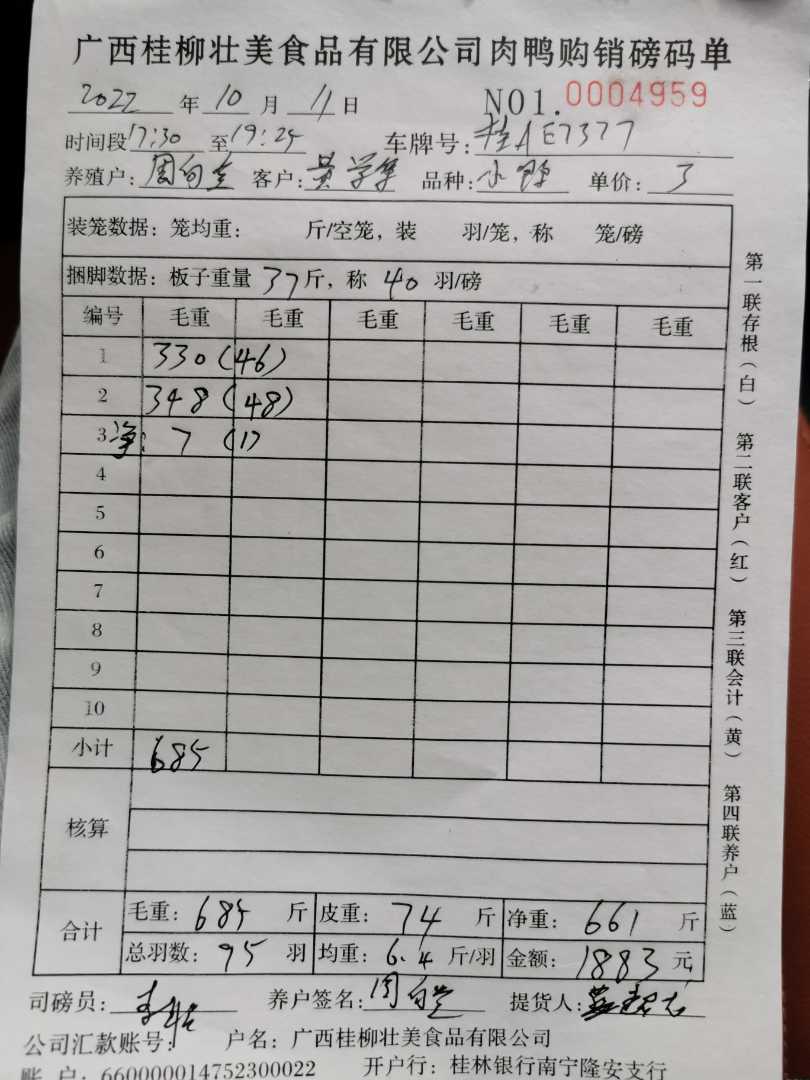 广西桂柳壮美食品有限公司肉鸭购销磅码单
2022 年 10 月 11 日 NO1.0004959
时间段17:30 至19:25 车牌号:桂AE7377
养殖户: 客户: 黄 品种:小 单价:3
装笼数据:笼均重: 斤/空笼,装 羽/笼,称 笼/磅
捆脚数据:板子重量 37斤,称 40 羽/磅
编号 毛重 毛重 毛重 毛重 毛重 毛重
1 330 (46)
2 348 (48)
3 净: 7 (1)
4
5
6
7
8
9
10
小计 685
核算
合计
毛重: 685 斤 皮重: 74 斤 净重: 661 斤
总羽数: 95 羽 均重: 6.4 斤/羽 金额: 1883 元
司磅员:李 养户签名:周 提货人:
公司汇款账号: 户名:广西桂柳壮美食品有限公司
账 户:660000014752300022 开户行:桂林银行南宁隆安支行
第一联存根(白)
第二联客户(红)
第三联会计(黄)
第四联养户(蓝)